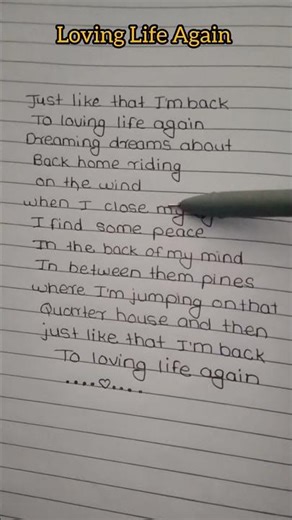 Loving Life Again
Just like that I'm back
To loving life again
Dreaming dreams about
Back home riding
on the wind
when I close my
I find some peace
In the back of my mind
In between them pines
where I'm jumping on that
Quarter house and then
just like that I'm back
To loving life again
....♡....